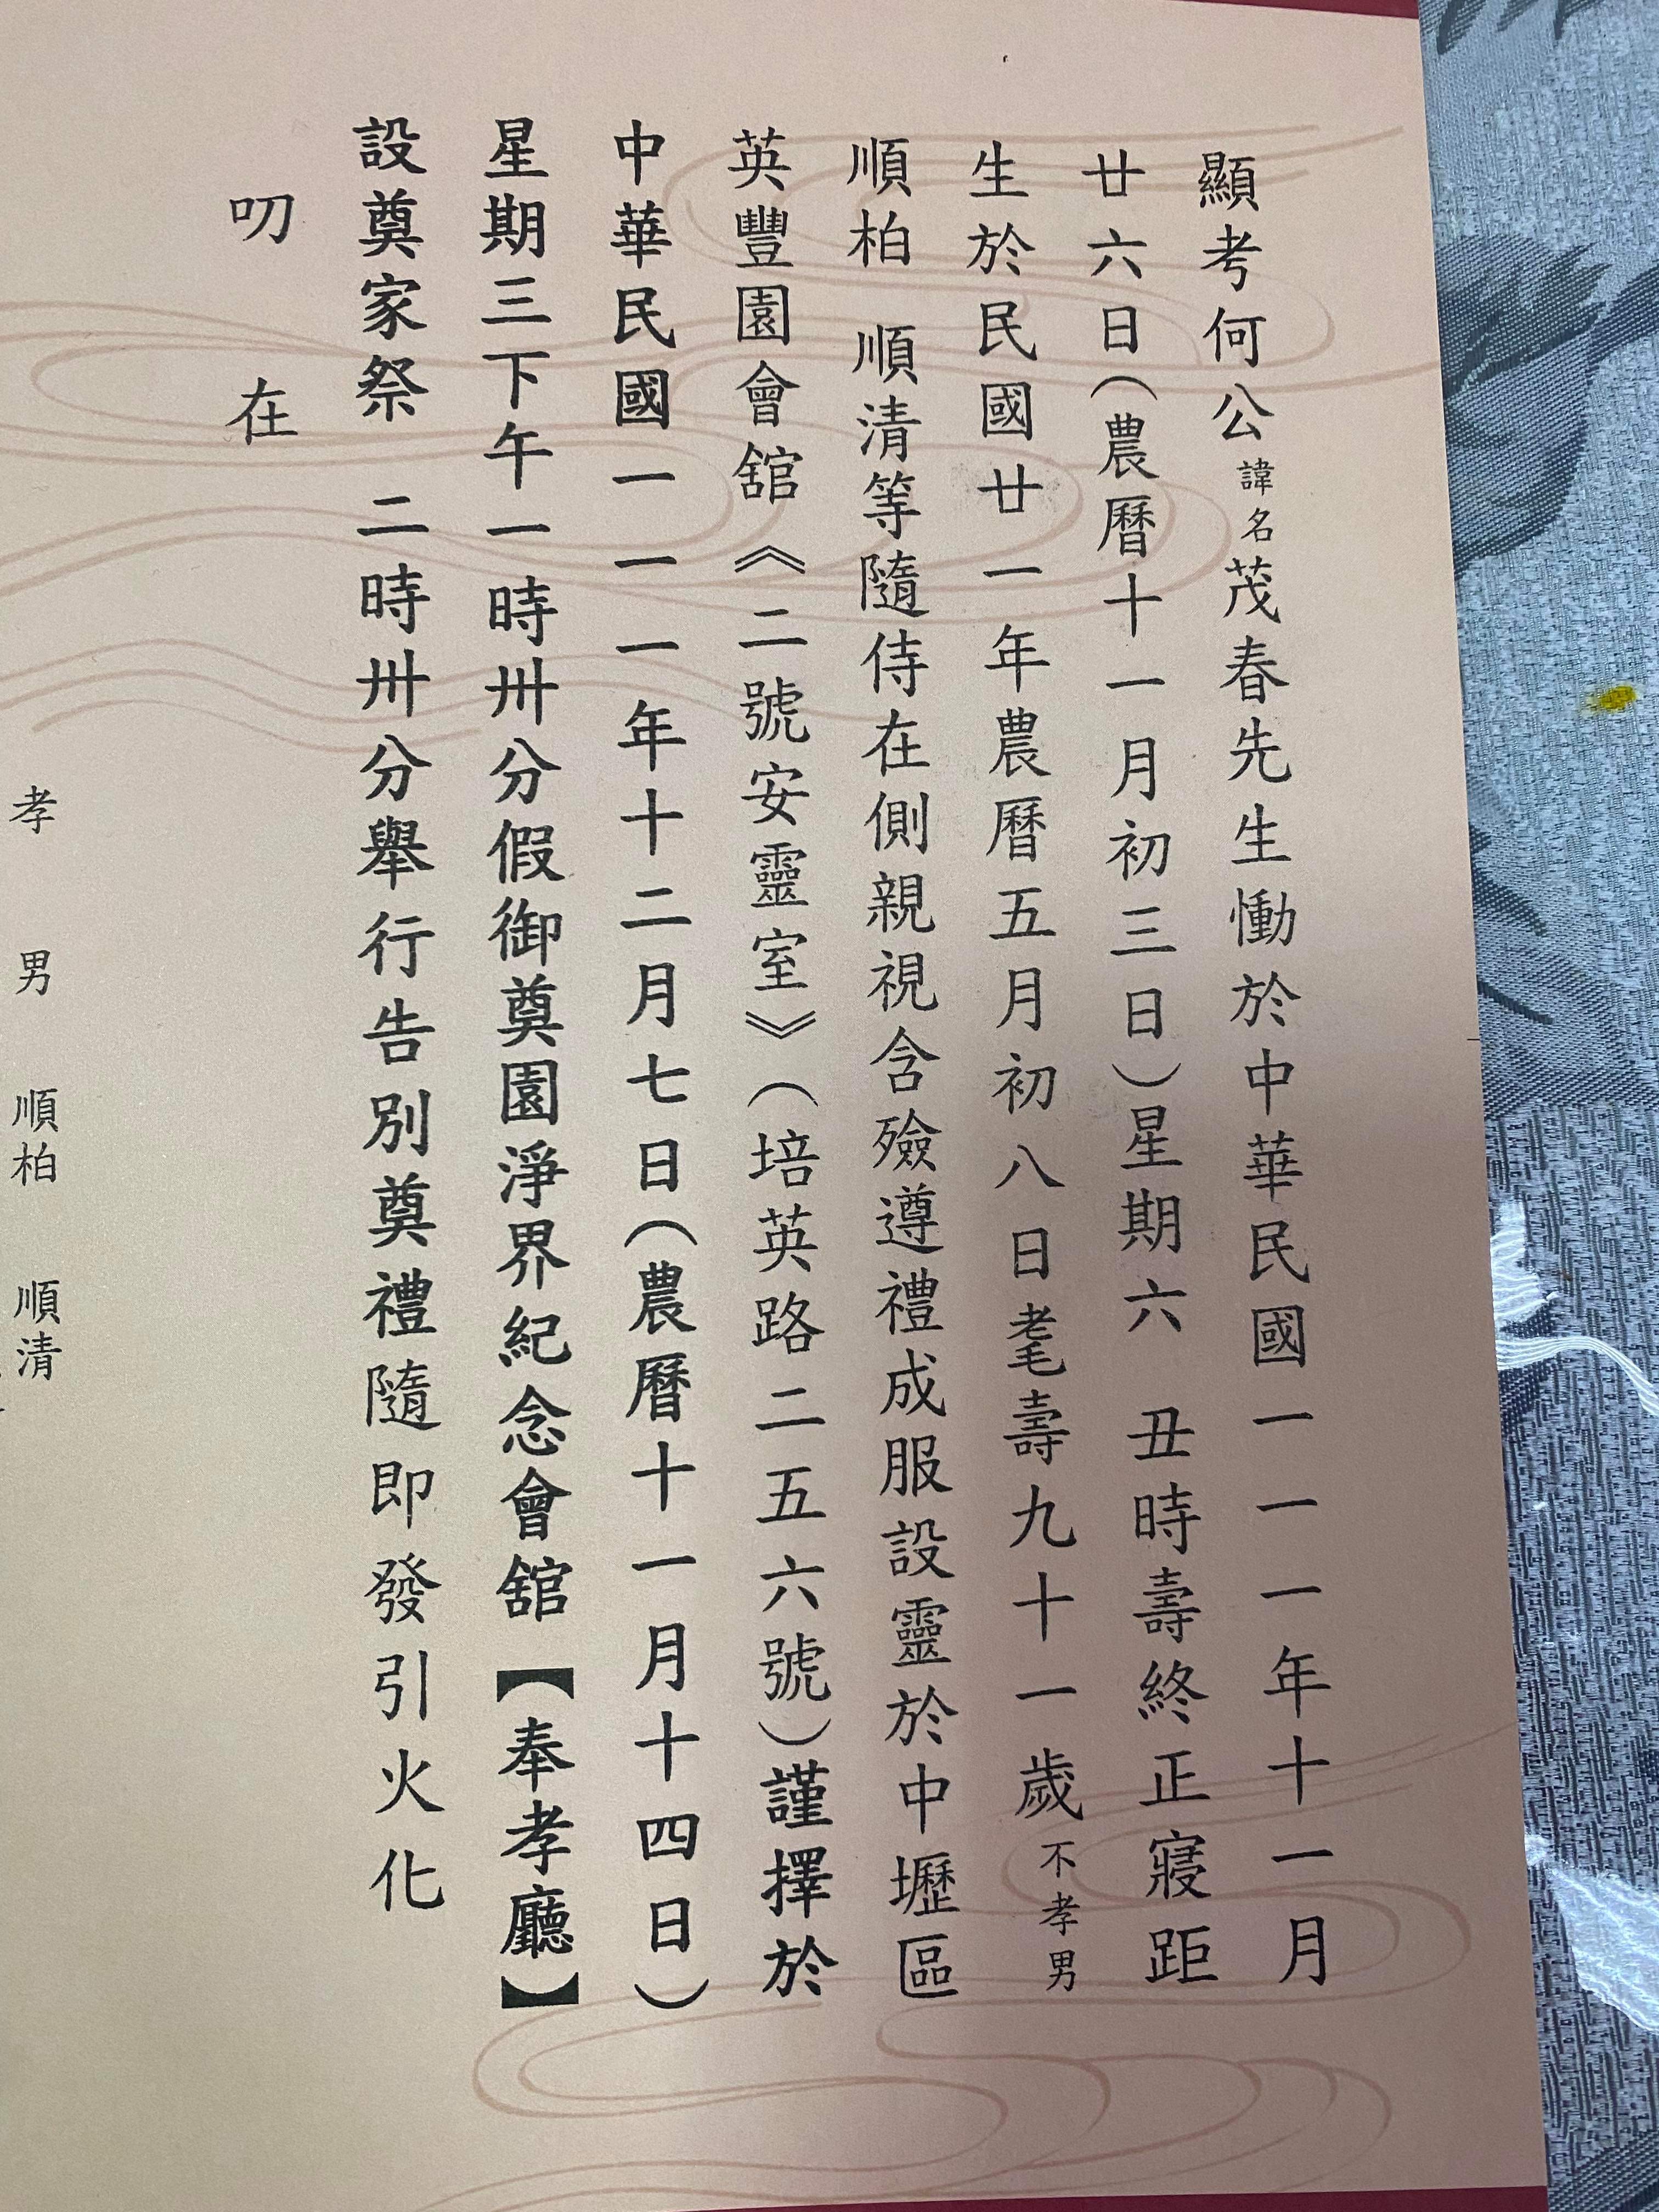 顯考何公諱名茂春先生慟於中華民國一一一年十一月
廿六日(農曆十一月初三日)星期六 丑時壽終正寢距
生於民國廿一年農曆五月初八日耄壽九十一歲不孝男
順柏 順清等隨侍在側親視含殮遵禮成服設靈於中壢區
英豐園會舘《二號安靈室》(培英路二五六號)謹擇於
中華民國一一一年十二月七日(農曆十一月十四日)
星期三下午一時卅分假御奠園淨界紀念會舘【奉孝廳】
設奠家祭 二時卅分舉行告別奠禮隨即發引火化
叨 在
孝 男 順柏 順清